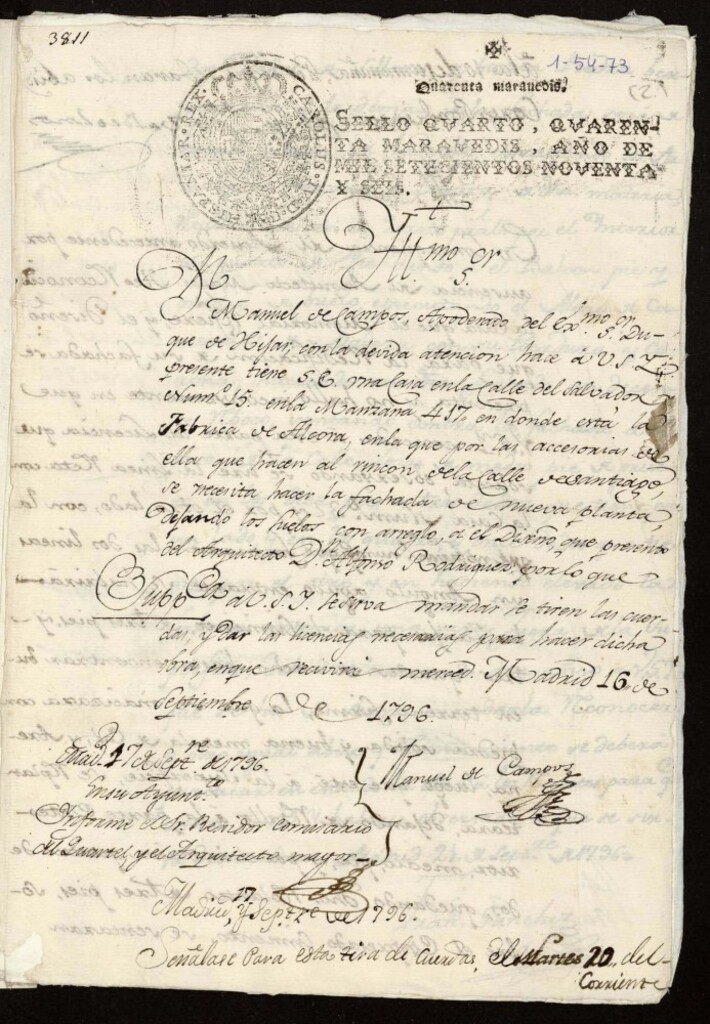 3811
1-54-73
Quarenta maravedis.
SELLO QVARTO, QVAREN-
TA MARAVEDIS, AÑO DE
MIL SETECIENTOS NOVENTA
Y SEIS.
CAROLUS IV D.G. HISPANIAR. REX.
Yllmo Sr
D. Manuel de Campos, Apoderado del Exmo. Sr. Du-
que de Hijar, con la devida atencion hace à V.S.Y.
presente tiene S.E. vna Casa en la Calle del Salvador
Num.º 15. en la Manzana 417 en donde està la
Fabrica de Alcora, en la que por las accesorias de
ella que hacen al rincon de la Calle de Santiago,
se necesita hacer la fachada de nueva planta,
dejando los huecos con arreglo, à el Diseño que presenta
del Arquitecto Dn. Alfonso Rodriguez, por lo que
Suppca à V.S.Y. se sirva mandar se tiren las cuer-
das, y dar las licencias necesarias para hacer dicha
obra, en que recivirà merced. Madrid 16 de
Septiembre de 1796.
Manuel de Campos
Mad.d 17 de Septre de 1796.
En su Ayunto.
Informe el Sr. Regidor Comisario
del Quartel, y el Arquitecto mayor
Madrid, y Septre 17 de 1796.
Señalase para esta tira de Cuerdas, el Martes 20,, del
Corriente